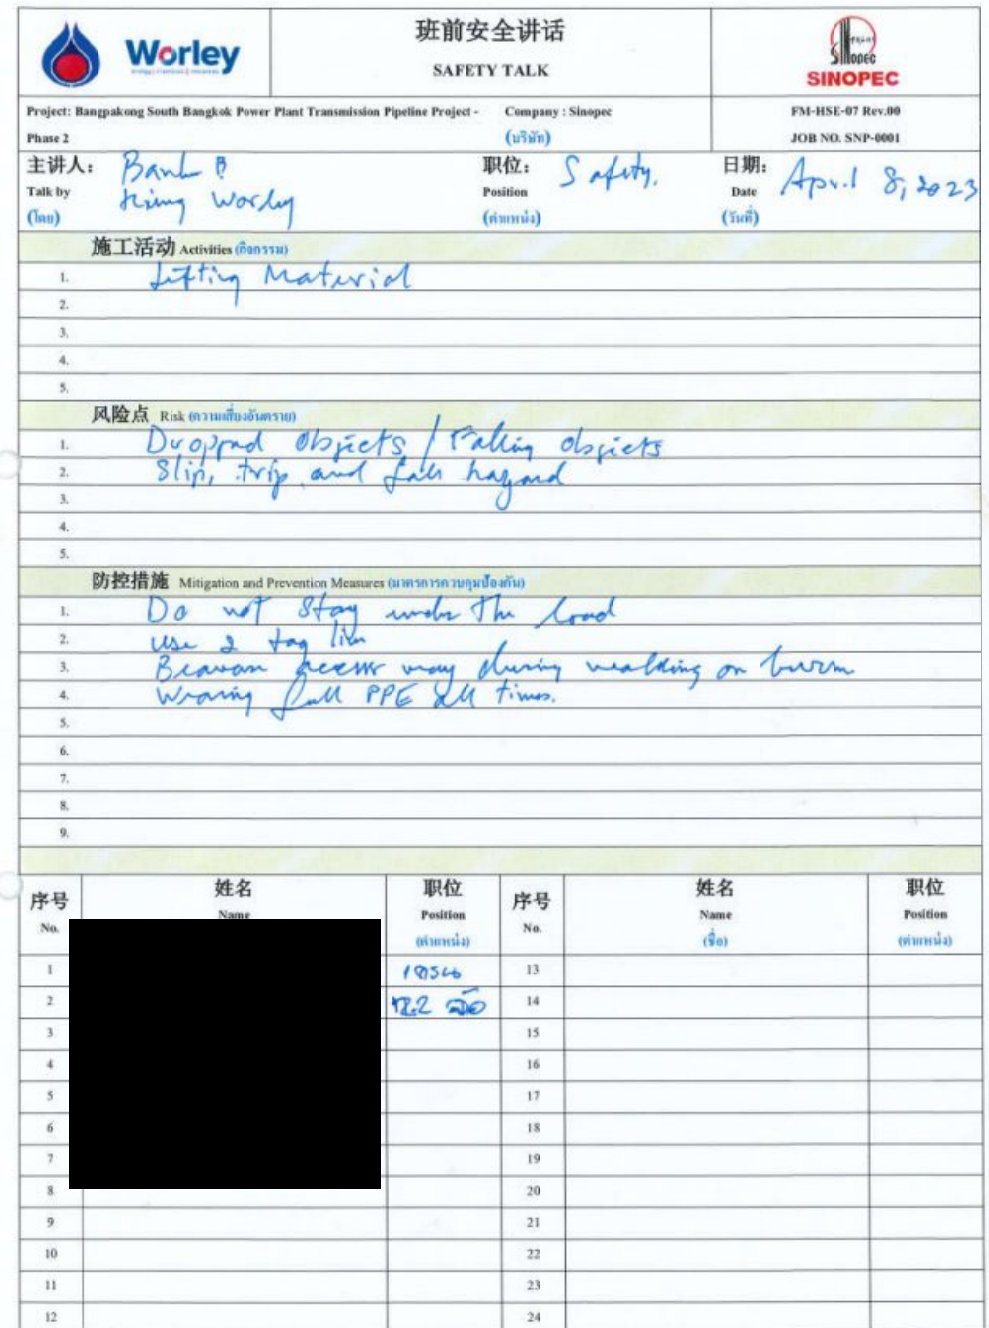 Worley
班前安全讲话
SAFETY TALK
Sinopec
SINOPEC
Project: Bangpakong South Bangkok Power Plant Transmission Pipeline Project - Phase 2
Company : Sinopec
(บริษัท)
FM-HSE-07 Rev.00
JOB NO. SNP-0001
主讲人: Bank B
Talk by
(โดย)
职位: Safety.
Position
(ตำแหน่ง)
日期: April 8, 2023
Date
(วันที่)
施工活动 Activities (กิจกรรม)
1. Lifting Material
2.
3.
4.
5.
风险点 Risk (ความเสี่ยงอันตราย)
1. Dropped Objects / Falling objects
2. Slip, trip, and fall hazard
3.
4.
5.
防控措施 Mitigation and Prevention Measures (มาตรการควบคุมป้องกัน)
1. Do not Stay under The load
2. Use 2 tag line
3. access way during walking on
4. Wearing full PPE all times.
5.
6.
7.
8.
9.
序号 姓名 职位 序号 姓名 职位
No. Name Position No. Name Position
(ตำแหน่ง) (ชื่อ) (ตำแหน่ง)
1 13
2 14
3 15
4 16
5 17
6 18
7 19
8 20
9 21
10 22
11 23
12 24